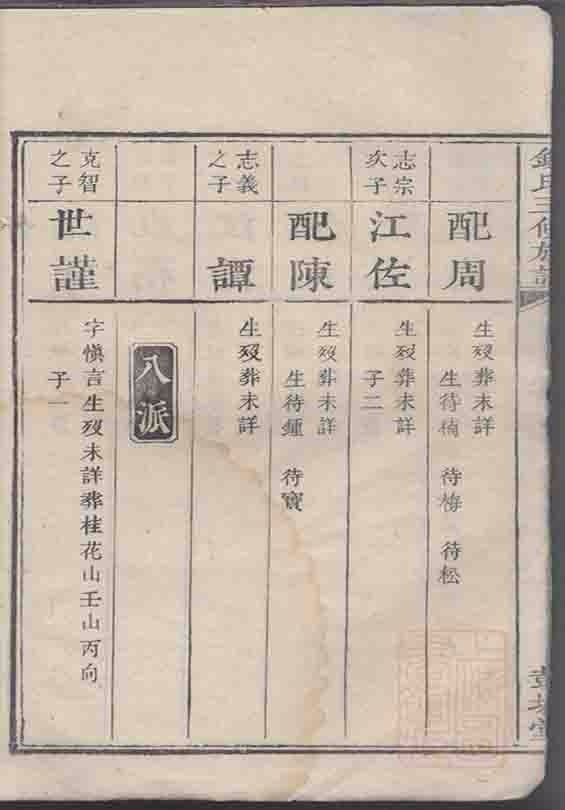 鍾氏三修族譜
配周
生歿葬未詳
生待楠 待梅 待松
志宗
次子
江佐
生歿葬未詳
子二
配陳
生歿葬未詳
生待鍾 待寶
志義
之子
譚
生歿葬未詳
八派
克智
之子
世謹
字愼言生歿未詳葬桂花山壬山丙向
子一